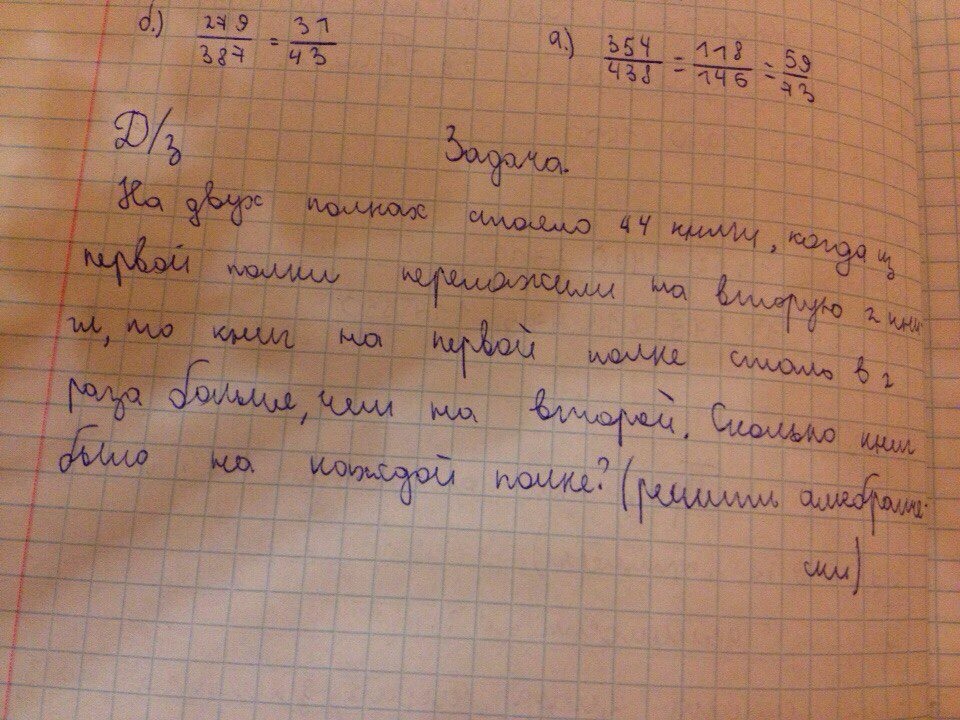 б.) 279/387 = 31/43 а.) 354/438 = 118/146 = 59/73
Д/з Задача.
На двух полках стояло 44 книги, когда из
первой полки переложили на вторую 2 кни-
ги, то книг на первой полке стало в 2
раза больше, чем на второй. Сколько книг
было на каждой полке? (решить алгебраиче-
ски)